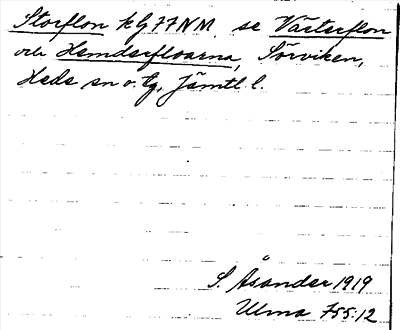 Storflon kG77NM se Västerflon
och Hemderfloarna, Sörviken,
Hede sn o. tg, Jämtl. l.
S. Åsander 1919
Ulma 755:12